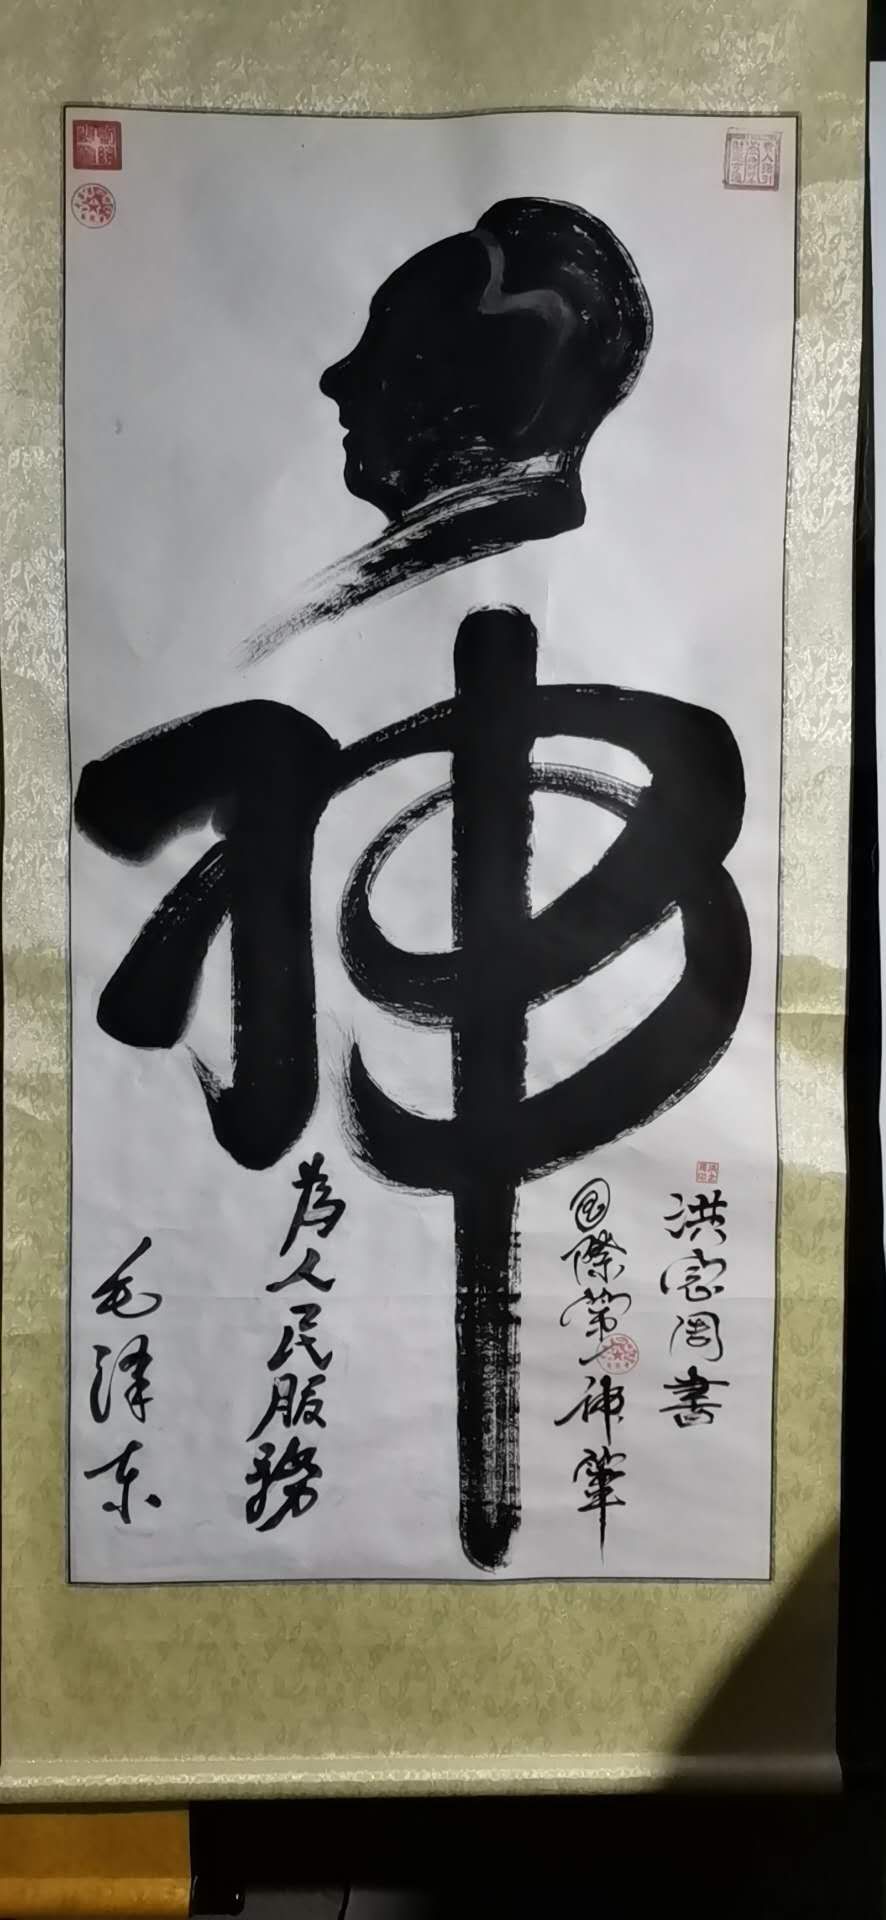 神
洪宗周書
国際第一神筆
為人民服務
毛泽东